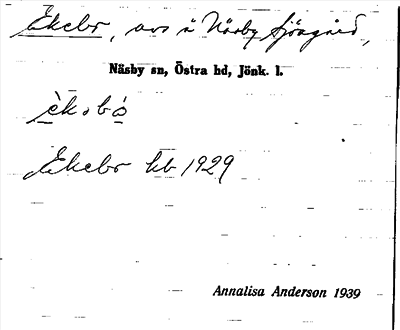 Ekebo, avs å Näsby Sjögård,
Näsby sn, Östra hd, Jönk. l.
è̱k₀bo̱
Ekebo kb 1929
Annalisa Anderson 1939